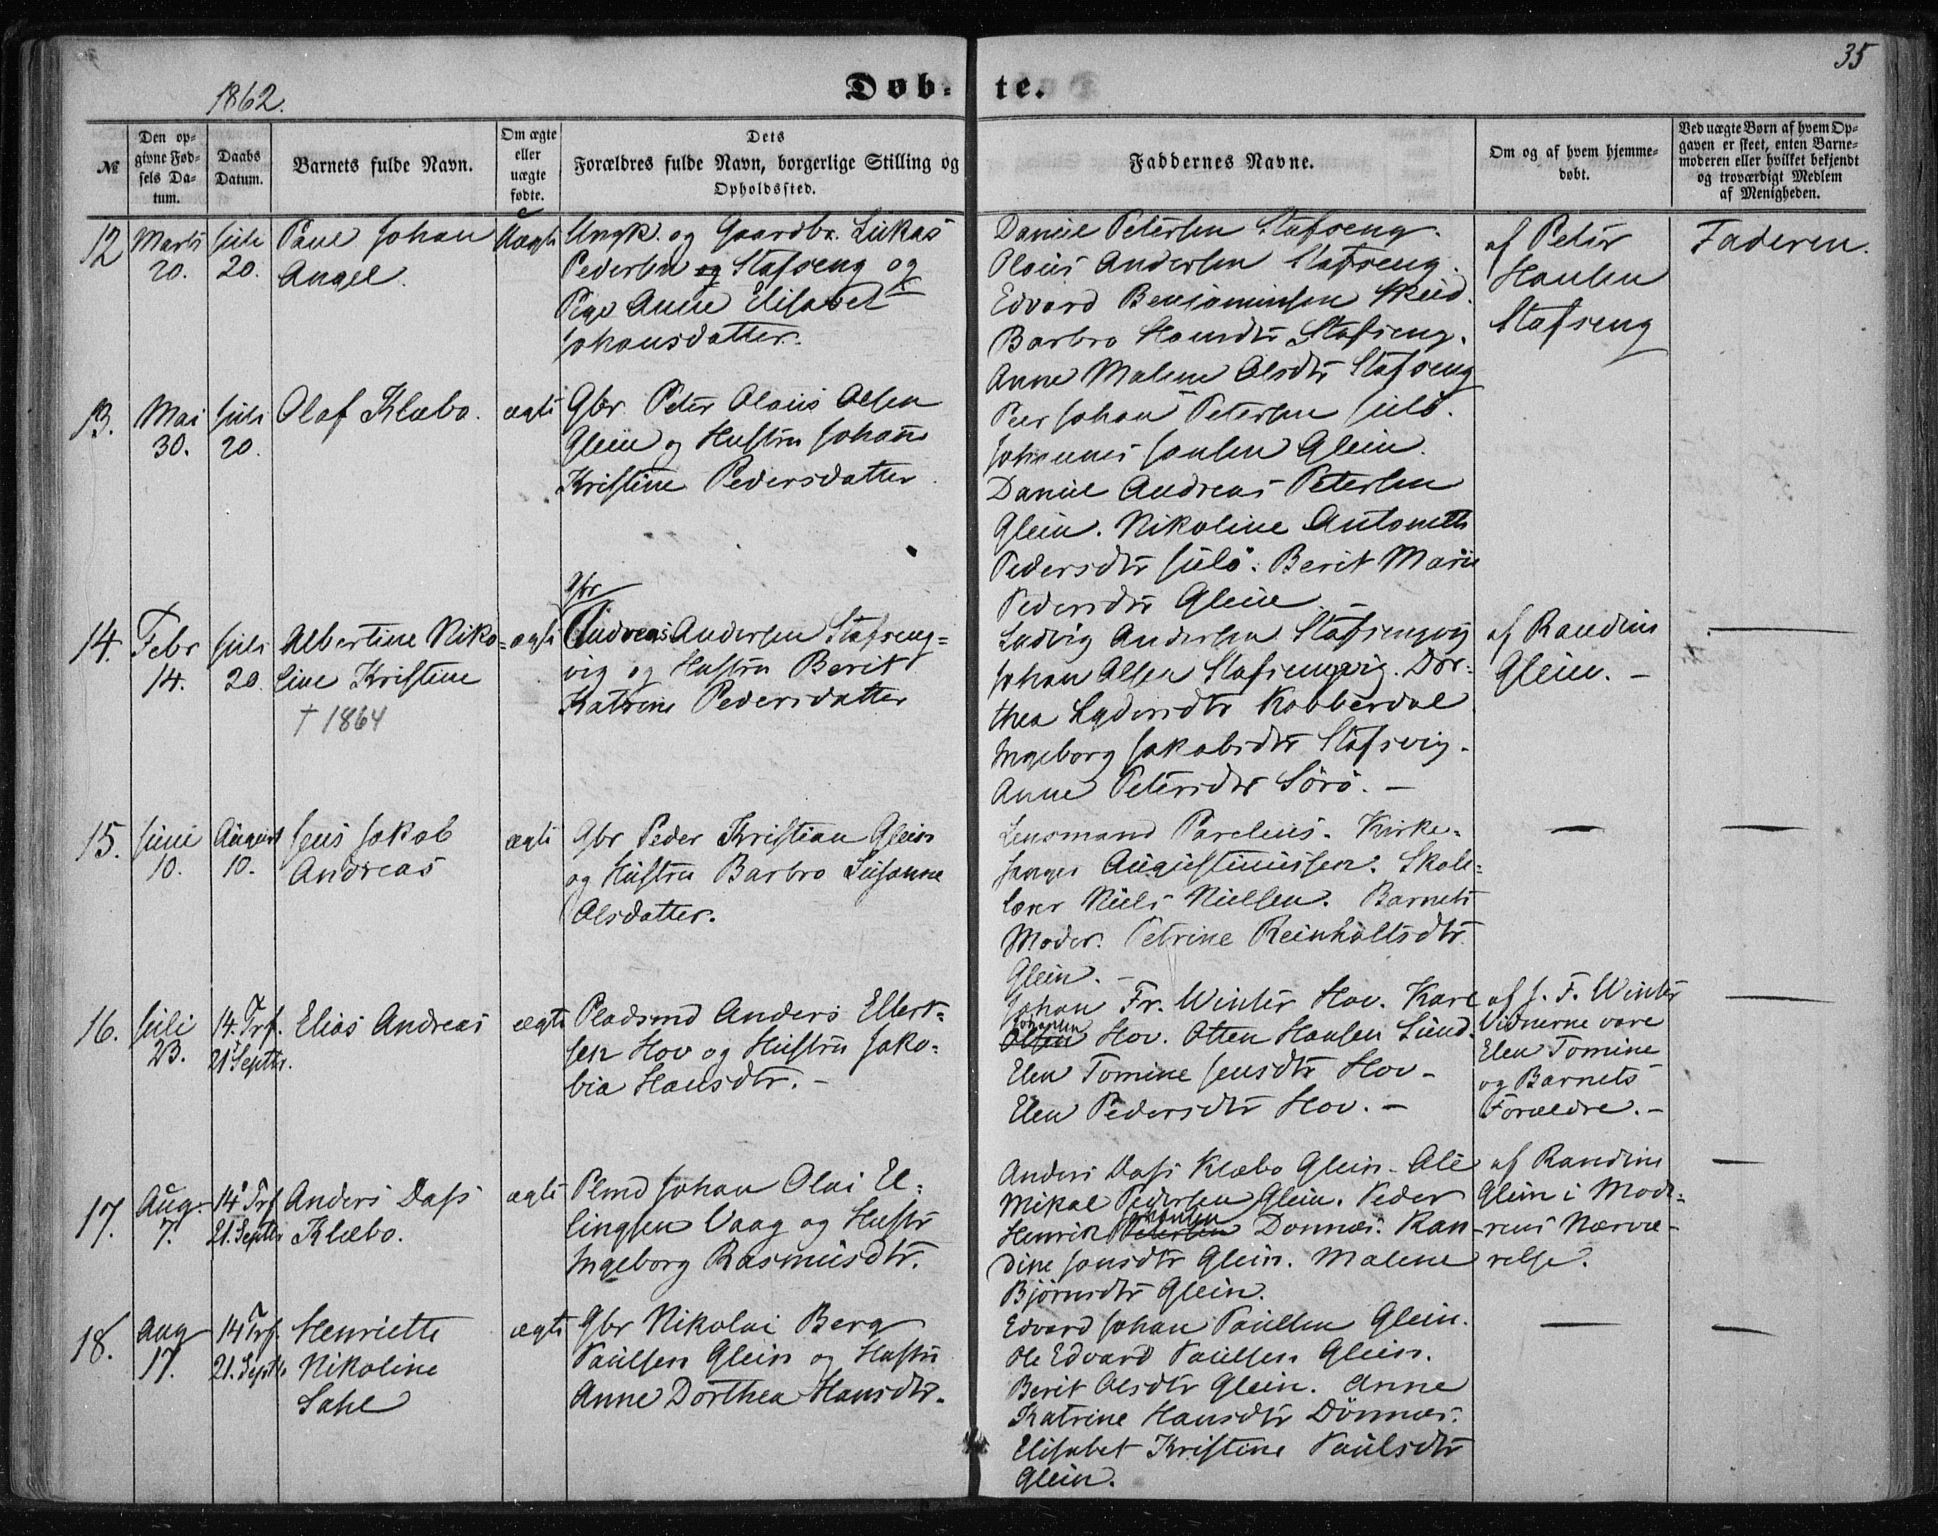 35
1862.
Døb- te.
№
Den op-
givne Fød-
sels Da-
tum.
Daabs
Datum.
Barnets fulde Navn.
Om ægte
eller
uægte
fødte.
Dets
Forældres fulde Navn, borgerlige Stilling og
Opholdssted.
Faddernes Navne.
Om og af hvem hjemme-
døbt.
Ved uægte Børn af hvem Op-
gaven er skeet, enten Barne-
moderen eller hvilket bekjendt
og troværdigt Medlem
af Menigheden.
12
Marts
20.
Juli
20.
Paul Johan
Angel.
Uægte
Ungk. og Gaardbr. Lukas
Pedersen og Stafseng og
Pige Anne Elisabet
Johansdatter.
Daniel Petersen Stafseng.
Olaus Andersen Stafseng.
Edvard Benjaminsen Skeid.
Barbro Hansdtr Stafseng.
Anne Malene Olsdtr Stafseng
af Peter
Hansen
Stafseng
Faderen.
13.
Mai
30.
Juli
20.
Olaf Klæbo.
ægte
Gbr. Peter Olaus Olsen
Glein og Hustru Johane
Kristine Pedersdatter.
Peer Johan Petersen Sulö.
Johannes Jonsen Glein.
Daniel Andreas Petersen
Glein. Nikoline Antonette
Pedersdtr Sulö. Berit Marie
Pedersdtr Glein
14.
Febr
14.
Juli
20.
Albertine Niko-
line Kristine
† 1864
ægte
Gbr
Andreas Andersen Stafseng-
vig og Hustru Berit
Katrine Pedersdatter
Ludvig Andersen Stafsengvig
Johan Olsen Stafsengvig. Dor-
thea Lydersdtr Kobberdal
Ingeborg Jakobsdtr Stafsvig.
Anne Petersdtr Sörö. —
af Randine
Glein. —
—
15.
Juni
10.
August
10.
Jens Jakob
Andreas
ægte
Gbr Peder Kristian Glein
og Hustru Barbro Susanne
Olsdatter.
Lensmand Parelius. Kirke-
sanger Augustinussen. Skole-
lærer Niels Nielsen. Barnets
Moder. Petrine Reinholtsdtr
Glein. —
—
—
16.
Juli
23.
14. Trf.
21 Septbr.
Elias Andreas
ægte
Pladsmd Anders Ellert-
sen Hov og Hustru Jako-
bia Hansdtr. —
Johan Fr. Winter Hov. Karl
Johansen
Olsen Hov. Otten Hansen Sund.
Elen Tomine Jensdtr Hov —
Elen Pedersdtr Hov. —
af J. F. Winter
Vidnerne vare
Elen Tomine
og Barnets
Forældre. —
—
17.
Aug.
7.
14 Trf
21. Septbr
Anders Dass
Klæbo.
ægte
Plmd Johan Olai El-
lingsen Vaag og Hustr
Ingeborg Rasmusdtr.
Anders Dass Klæbo Glein. Ole
Mikal Pedersen Glein. Peder
Johansen
Henrik Petersen Donnæs. Ran-
dine Jonsdtr Glein. Malene
Bjørnsdtr Glein.
af Randine
Glein i Mode-
rens Nærvæ-
relse.
—
18.
Aug
17.
14 Trf.
21. Septbr
Henriette
Nikoline
Sahl
ægte
Gbr Nikolai Berg
Paulsen Glein og Hustru
Anne Dorthea Hansdtr.
Edvard Johan Paulsen Glein.
Ole Edvard Paulsen Glein.
Berit Olsdtr Glein. Anne
Katrine Hansdtr Dönnæs.
Elisabet Kristine Paulsdtr
Glein.
—
—